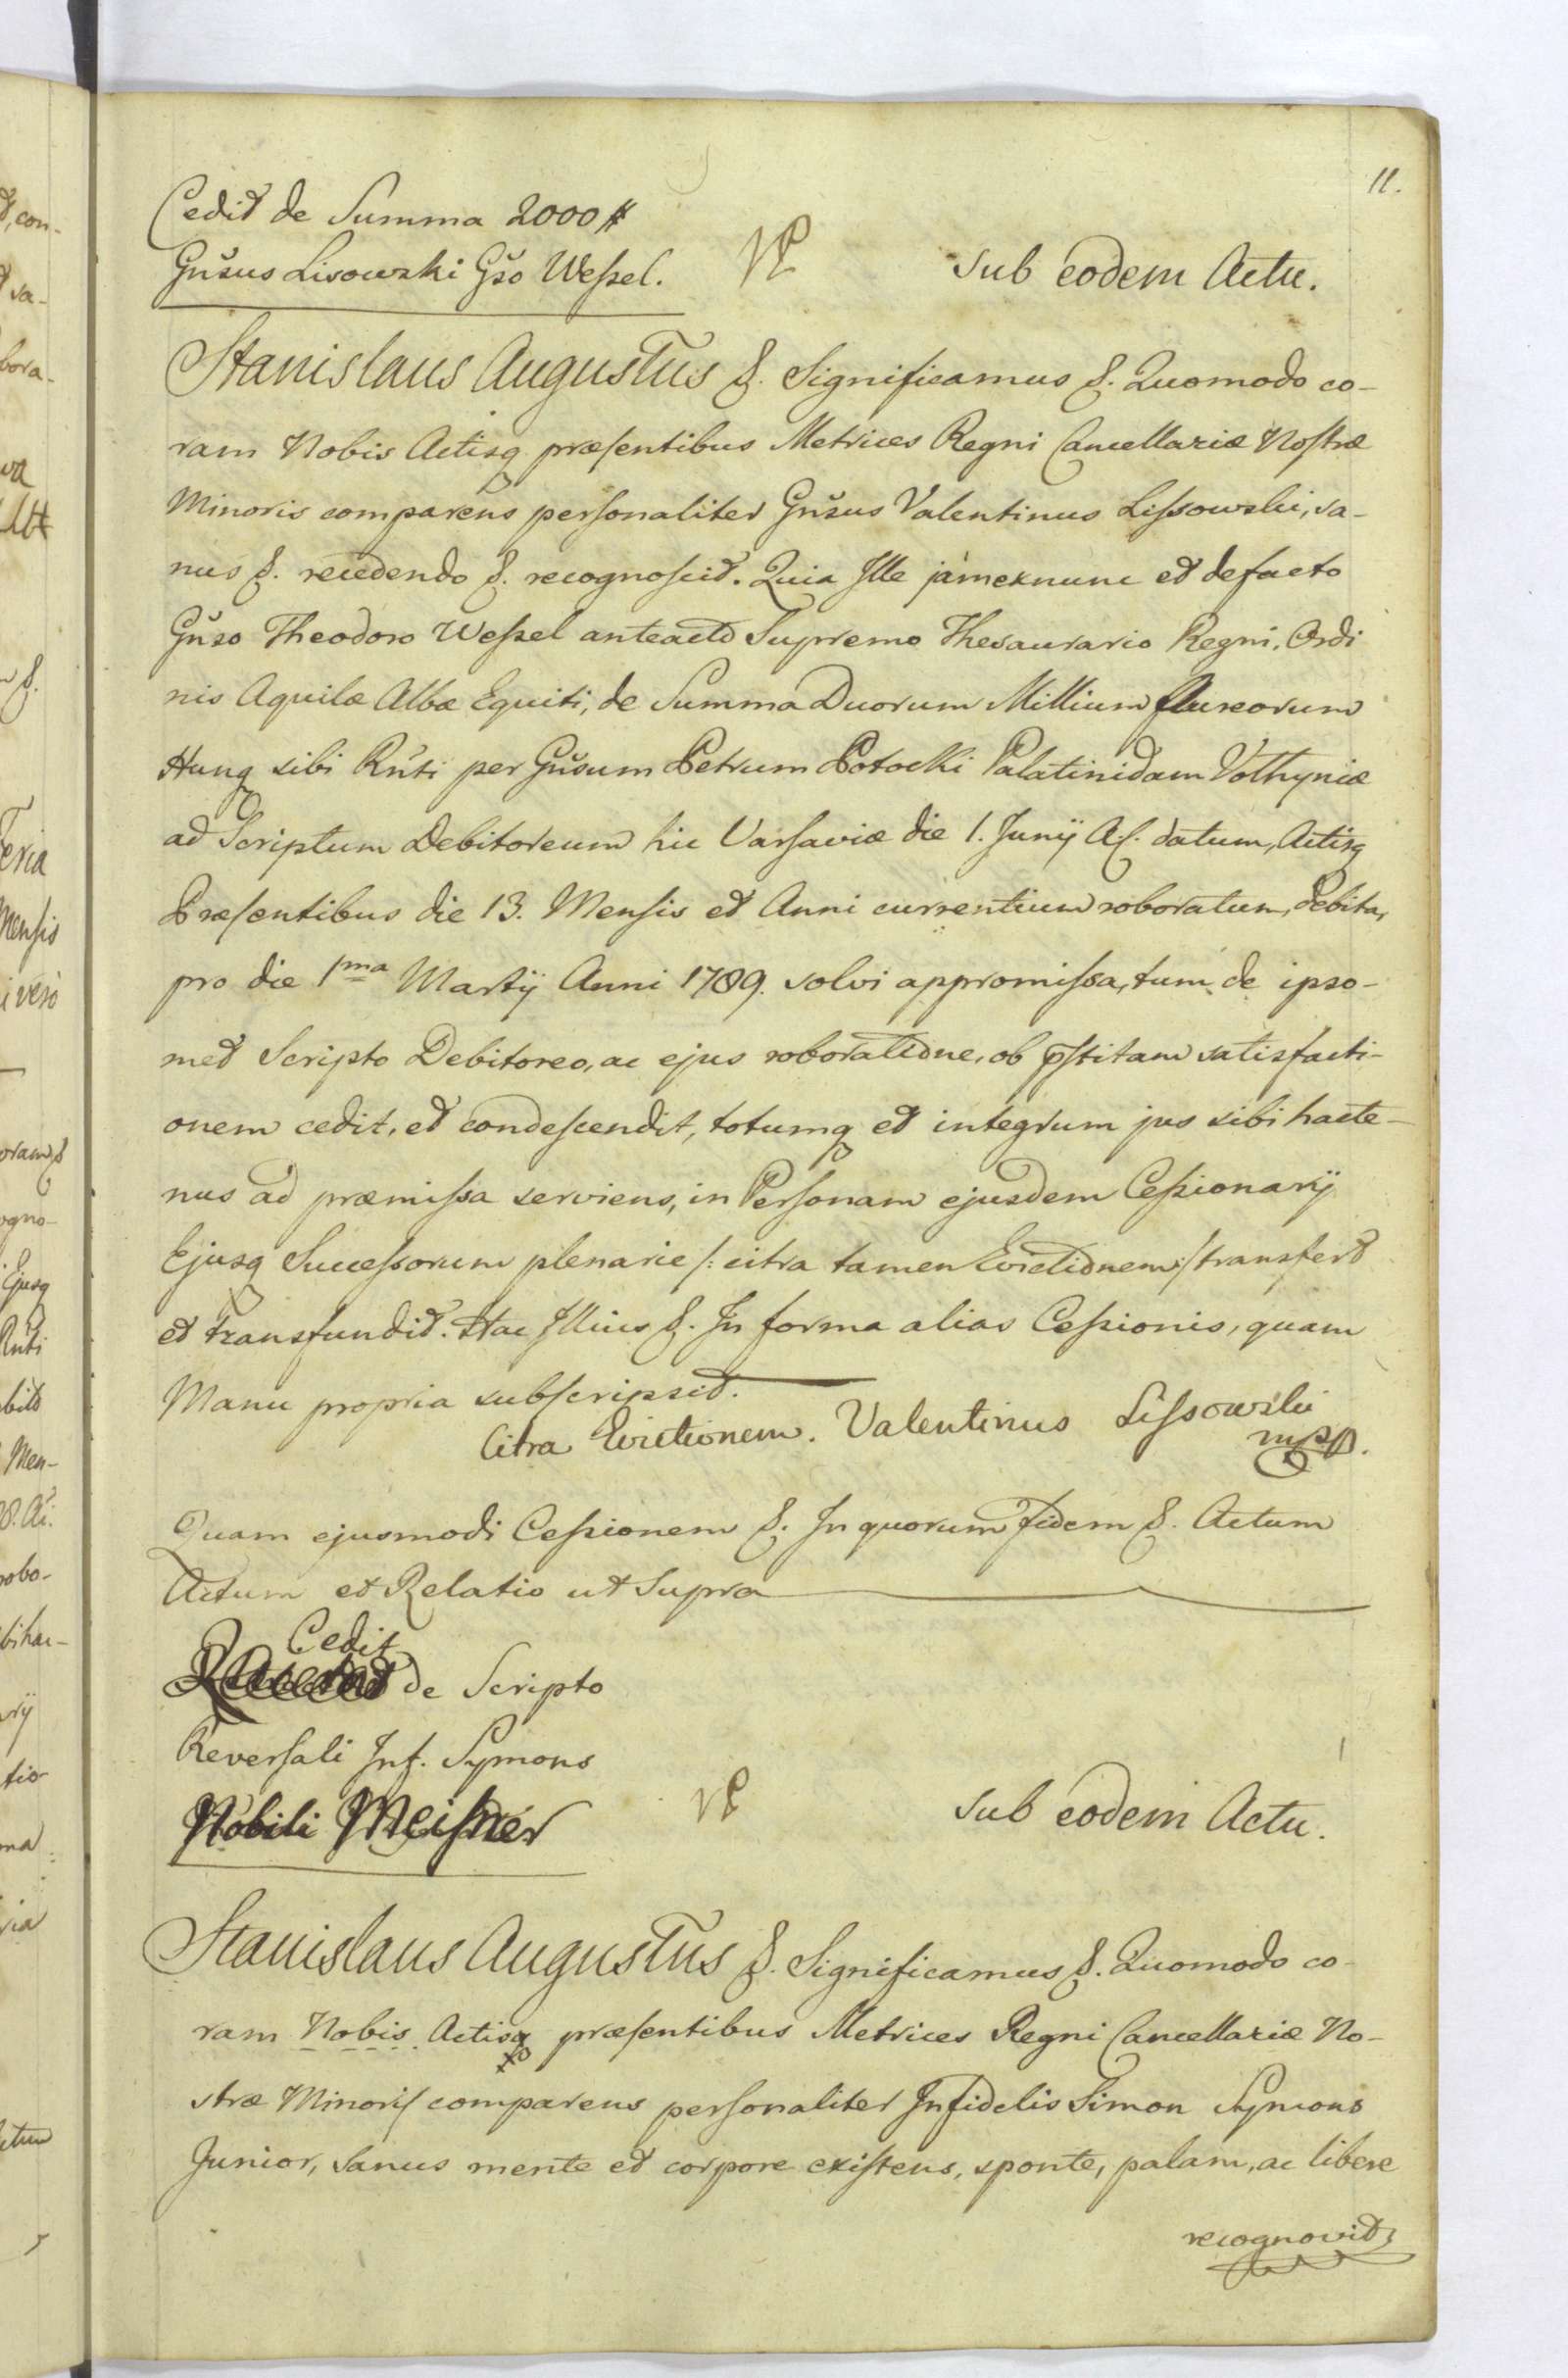 11.
Cedit de Summa 2000 #
Gnsus Lisowski Gso Weſsel. Sub eodem Actu.
Stanislaus Augustus &. Significamus &. Quomodo co-
ram Nobis Actisq præſentibus Metrices Regni Cancellariæ Noſtræ
Minoris comparens perſonaliter Gnsus Valentinus Liſsowski, sa-
nus &. recedendo &. recognoſcit. Quia Ille jamexnunc et defacto
Gnso Theodoro Weſsel anteacto Supremo Thesaurario Regni, Ordi
nis Aquilæ Albæ Equiti, de Summa Duorum Millium Aureorum
Hung sibi Rnti per Gnsum Petrum Potocki Palatinidam Volhyniæ
ad Scriptum Debitoreum hic Varſaviæ die 1. Junij A. c. datum, Actisq
Præſentibus die 13. Menſis et Anni currentium roboratum, debita,
pro die 1ma Martij Anni 1789. solvi appromiſsa, tum de ipso-
met Scripto Debitoreo, ac ejus roboratione, ob pſtitam satisfacti-
onem cedit, et condeſcendit, totumq et integrum jus sibi hacte-
nus ad præmiſsa serviens, in Perſonam ejusdem Ceſsionarij
Ejusq Succeſsorum plenarie /: citra tamen Evictionem :/ transfert
et transfundit. Hac Illius &. In forma alias Ceſsionis, quam
Manu propria subſcripsit.
Citra Evictionem. Valentinus Liſsowski
mpp.
Quam ejusmodi Ceſsionem &. In quorum fidem &. Actum
Actum et Relatio ut Supra
Cedit
de Scripto
Reverſali Inf. Symons
Nobili Meiſner Sub eodem Actu.
Stanislaus Augustus &. Significamus &. Quomodo co-
ram Nobis Actisq præſentibus Metrices Regni Cancellariæ No-
stræ Minoriſ comparens perſonaliter Infidelis Simon Symons
Junior, Sanus mente et corpore exiſtens, sponte, palam, ac libere
recognovit